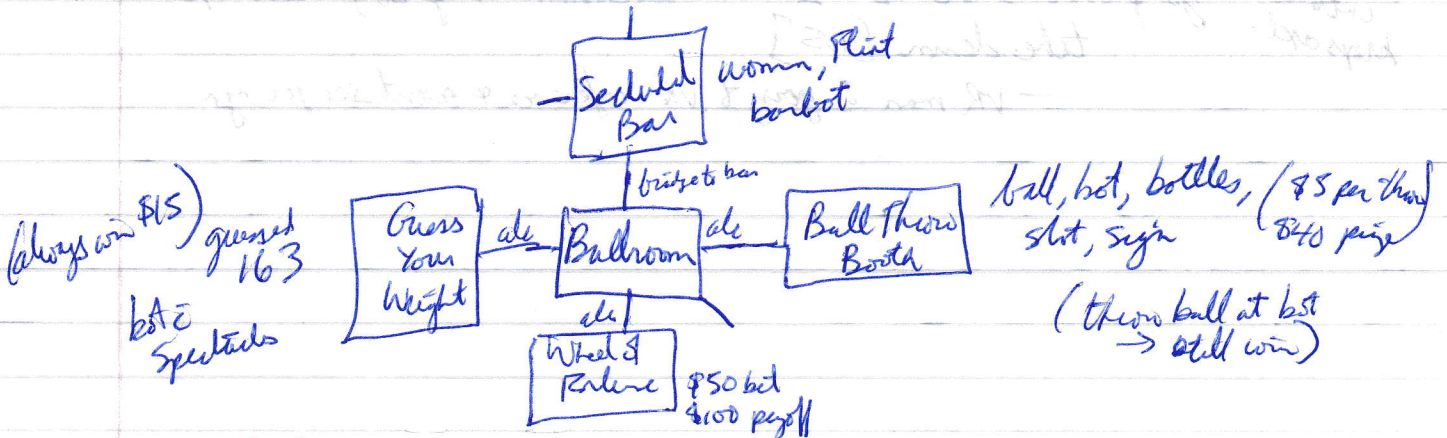 Secluded
Bar
women, Flint
barbot
bridge to bar
(always win $15)
guessed
163
bot c̄
Spectacles
Guess
Your
Weight
alc
Ballroom
alc
Ball Throw
Booth
ball, bot, bottles,
slot, sign
($5 per throw)
$40 prize)
(throw ball at bot
→ still win)
alc
Wheel of
Fortune
$50 bet
$100 payoff